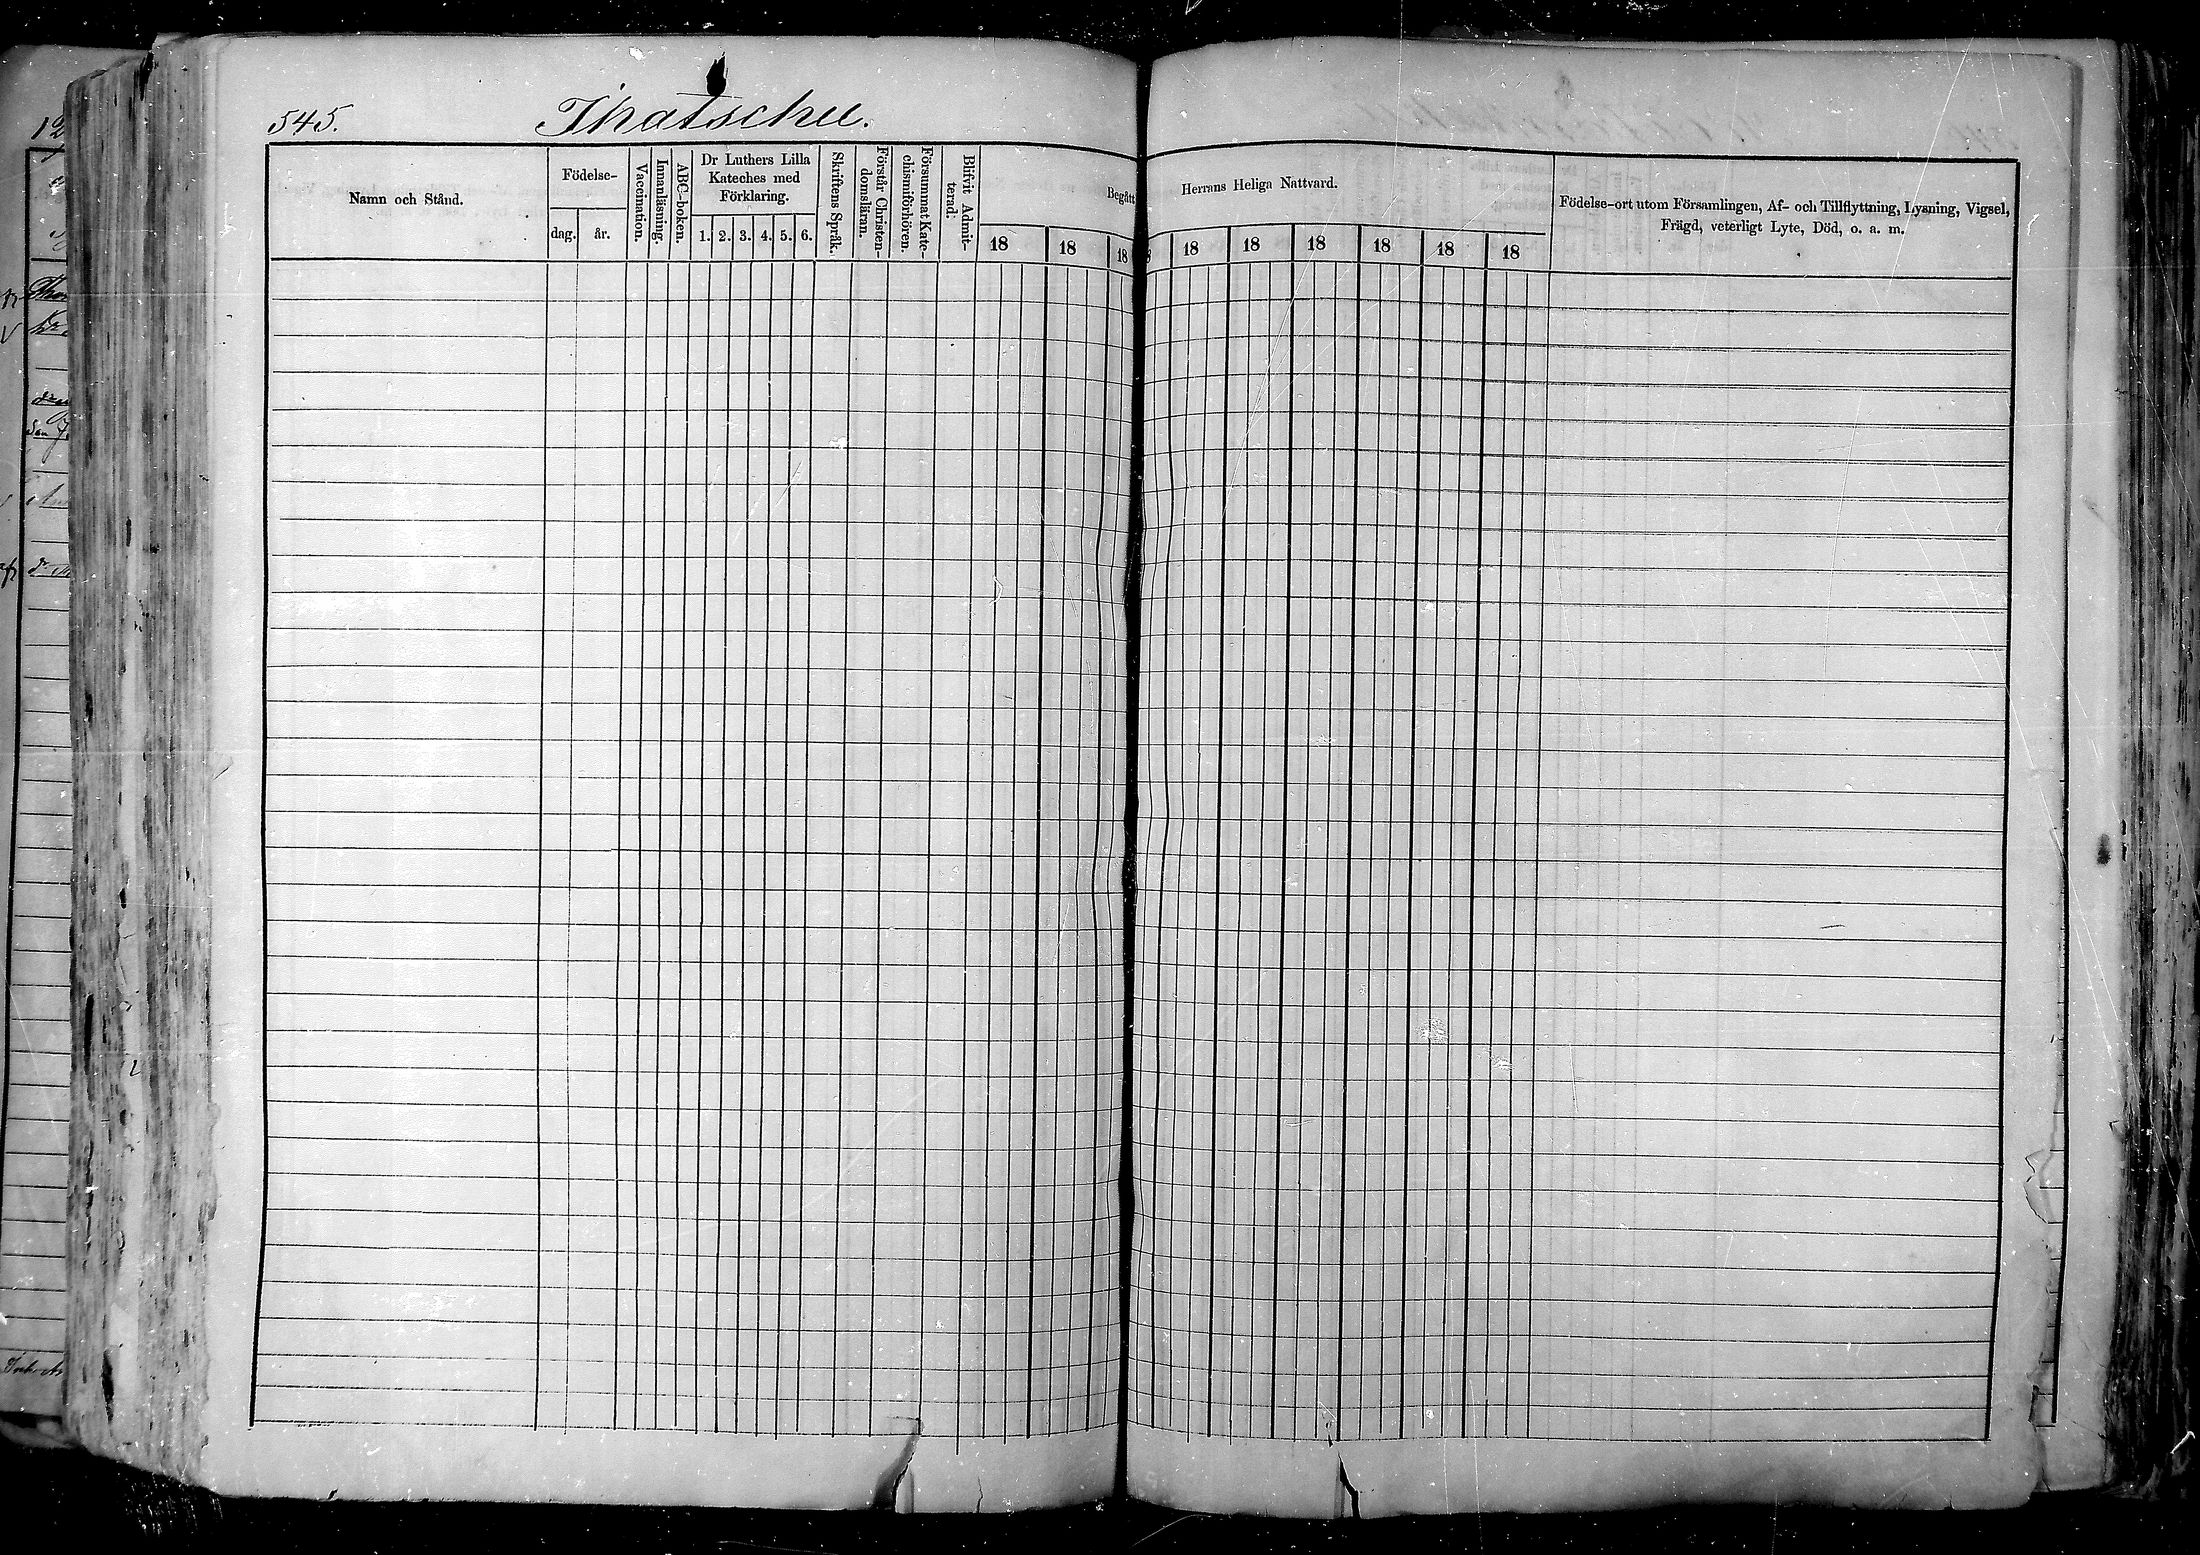 545. Thatschu.
Namn och Stånd.
Födelse-
dag. år.
Vaccination.
Innanläsning.
ABC-boken.
Dr Luthers Lilla
Kateches med
Förklaring.
1. 2. 3. 4. 5. 6.
Skriftens Språk.
Förstår Christen-
domsläran.
Försummat Kate-
chismiförhören.
Blifvit Admit-
terad.
Begått Herrans Heliga Nattvard.
18 18 18 18 18 18 18 18 18
Födelse-ort utom Församlingen, Af- och Tillflyttning, Lysning, Vigsel,
Frägd, veterligt Lyte, Död, o. a. m.